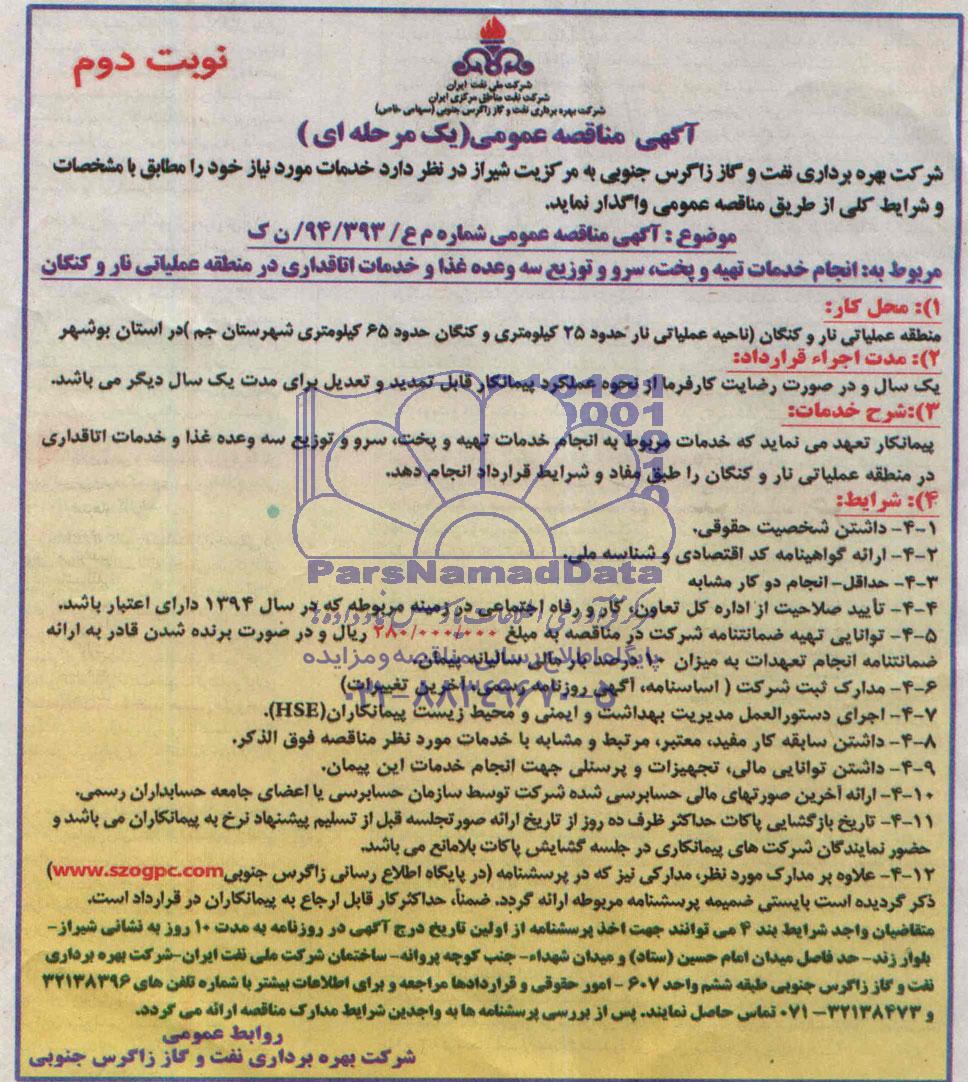 نوبت دوم
شرکت ملی نفت ایران
شرکت نفت مناطق مرکزی ایران
شرکت بهره برداری نفت و گاز زاگرس جنوبی (سهامی خاص)
آگهی مناقصه عمومی(یک مرحله ای )
شرکت بهره برداری نفت و گاز زاگرس جنوبی به مرکزیت شیراز در نظر دارد خدمات مورد نیاز خود را مطابق با مشخصات
و شرایط کلی از طریق مناقصه عمومی واگذار نماید.
موضوع : آگهی مناقصه عمومی شماره م ع/ ۹۴/۳۹۳/ ن ک
مربوط به: انجام خدمات تهیه و پخت، سرو و توزیع سه وعده غذا و خدمات اتاقداری در منطقه عملیاتی نار و کنگان
۱): محل کار:
منطقه عملیاتی نار و کنگان (ناحیه عملیاتی نار حدود ۲۵ کیلومتری و کنگان حدود ۶۵ کیلومتری شهرستان جم )در استان بوشهر
۲): مدت اجراء قرارداد:
یک سال و در صورت رضایت کارفرما از نحوه عملکرد پیمانکار قابل تمدید و تعدیل برای مدت یک سال دیگر می باشد.
۳):شرح خدمات:
پیمانکار تعهد می نماید که خدمات مربوط به انجام خدمات تهیه و پخت، سرو و توزیع سه وعده غذا و خدمات اتاقداری
در منطقه عملیاتی نار و کنگان را طبق مفاد و شرایط قرارداد انجام دهد.
۴): شرایط:
۴-۱- داشتن شخصیت حقوقی.
۴-۲- ارائه گواهینامه کد اقتصادی و شناسه ملی.
۴-۳- حداقل- انجام دو کار مشابه
ParsNamadData
۴-۴- تأیید صلاحیت از اداره کل تعاون، کار و رفاه اجتماعی در زمینه مربوطه که در سال ۱۳۹۴ دارای اعتبار باشد.
۴-۵- توانایی تهیه ضمانتنامه شرکت در مناقصه به مبلغ ۲۸۰/۰۰۰/۰۰۰ ریال و در صورت برنده شدن قادر به ارائه
ضمانتنامه انجام تعهدات به میزان ۱۰ درصد بار مالی سالیانه پیمان.
پایگاه اطلاع رسانی مناقصه و مزایده
۴-۶- مدارک ثبت شرکت ( اساسنامه، آگهی روزنامه رسمی، آخرین تغییرات)
۴-۷- اجرای دستورالعمل مدیریت بهداشت و ایمنی و محیط زیست پیمانکاران(HSE).
۴-۸- داشتن سابقه کار مفید، معتبر، مرتبط و مشابه با خدمات مورد نظر مناقصه فوق الذکر.
۴-۹- داشتن توانایی مالی، تجهیزات و پرسنلی جهت انجام خدمات این پیمان.
۴-۱۰- ارائه آخرین صورتهای مالی حسابرسی شده شرکت توسط سازمان حسابرسی یا اعضای جامعه حسابداران رسمی.
۴-۱۱- تاریخ بازگشایی پاکات حداکثر ظرف ده روز از تاریخ ارائه صورتجلسه قبل از تسلیم پیشنهاد نرخ به پیمانکاران می باشد و
حضور نمایندگان شرکت های پیمانکاری در جلسه گشایش پاکات بلامانع می باشد.
۴-۱۲- علاوه بر مدارک مورد نظر، مدارکی نیز که در پرسشنامه (در پایگاه اطلاع رسانی زاگرس جنوبی www.szogpc.com)
ذکر گردیده است بایستی ضمیمه پرسشنامه مربوطه ارائه گردد. ضمناً، حداکثر کار قابل ارجاع به پیمانکاران در قرارداد است.
متقاضیان واجد شرایط بند ۴ می توانند جهت اخذ پرسشنامه از اولین تاریخ درج آگهی در روزنامه به مدت ۱۰ روز به نشانی شیراز-
بلوار زند- حد فاصل میدان امام حسین (ستاد) و میدان شهداء- جنب کوچه پروانه- ساختمان شرکت ملی نفت ایران-شرکت بهره برداری
نفت و گاز زاگرس جنوبی طبقه ششم واحد ۶۰۷ - امور حقوقی و قراردادها مراجعه و برای اطلاعات بیشتر با شماره تلفن های ۳۲۱۳۸۳۹۶
و ۳۲۱۳۸۴۷۳-۰۷۱ تماس حاصل نمایند. پس از بررسی پرسشنامه ها به واجدین شرایط مدارک مناقصه ارائه می گردد.
روابط عمومی
شرکت بهره برداری نفت و گاز زاگرس جنوبی